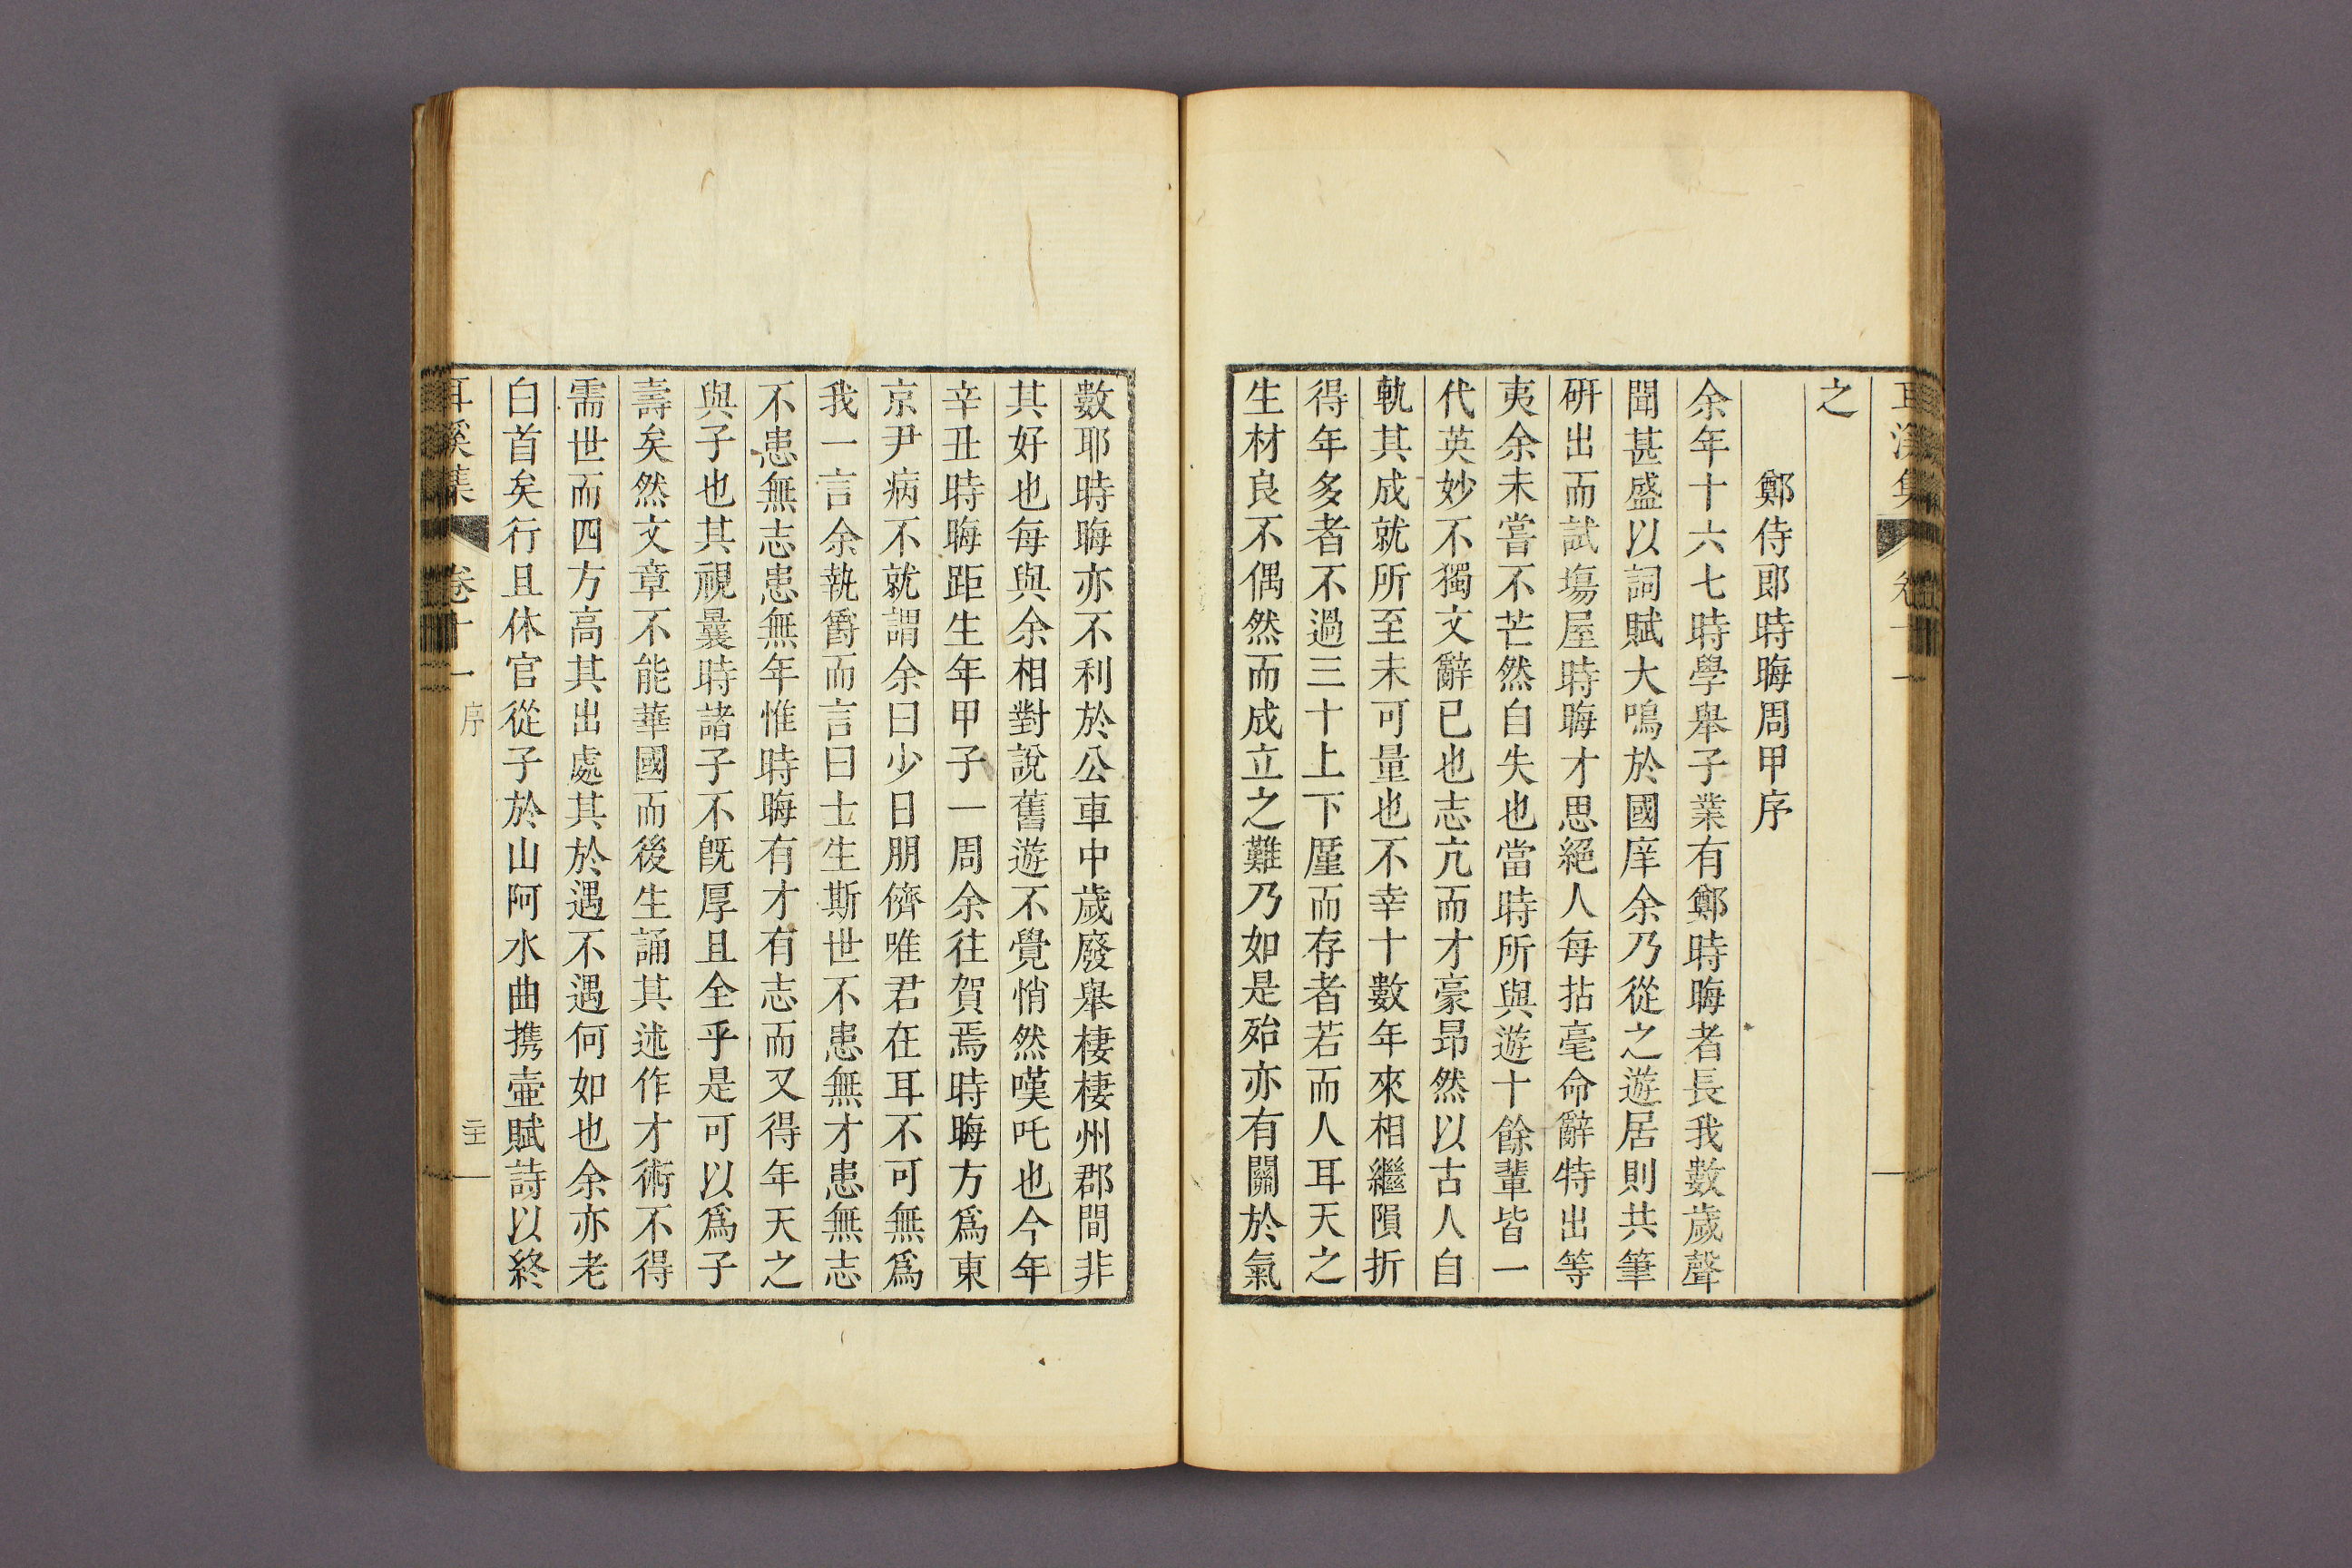 之
鄭侍郎時晦周甲序
余年十六七時學舉子業有鄭時晦者長我數歲聲
聞甚盛以詞賦大鳴於國庠余乃從之遊居則共筆
硏出而試塲屋時晦才思絕人每拈毫命辭特出等
夷余未嘗不芒然自失也當時所與遊十餘輩皆一
代英妙不獨文辭已也志亢而才豪昂然以古人自
軌其成就所至未可量也不幸十數年來相繼隕折
得年多者不過三十上下厪而存者若而人耳天之
生材良不偶然而成立之難乃如是殆亦有關於氣
數耶時晦亦不利於公車中歲廢舉棲棲州郡間非
其好也每與余相對說舊遊不覺悄然嘆吒也今年
辛丑時晦距生年甲子一周余往賀焉時晦方爲東
京尹病不就謂余曰少日朋儕唯君在耳不可無爲
我一言余執爵而言曰士生斯世不患無才患無志
不患無志患無年惟時晦有才有志而又得年天之
與子也其視曩時諸子不旣厚且全乎是可以爲子
壽矣然文章不能華國而後生誦其述作才術不得
需世而四方高其出處其於遇不遇何如也余亦老
白首矣行且休官從子於山阿水曲携壷賦詩以終
耳溪集 卷十一 序